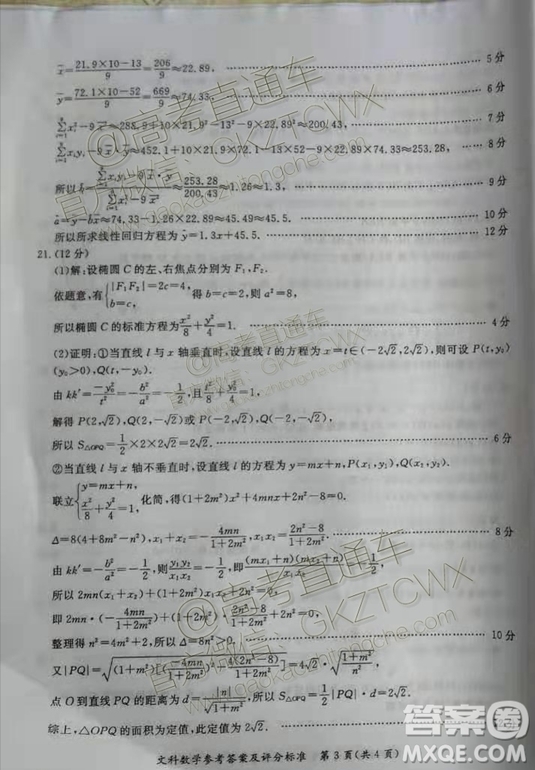 x̄=(21.9×10-13)/9=206/9≈22.89. 5分
ȳ=(72.1×10-52)/9=669/9≈74.33. 6分
≈288.9+10×21.9²-13²-9×22.89²≈200.43, 7分
≈452.1+10×21.9×72.1-13×52-9×22.89×74.33≈253.28, 8分
所以 ≈253.28/200.43≈1.26≈1.3, 9分
â=ȳ-b̂x̄≈74.33-1.26×22.89≈45.49≈45.5. 10分
所以所求线性回归方程为ŷ=1.3x+45.5. 12分
21.(12分)
(1)解:设椭圆C的左、右焦点分别为F₁,F₂.
依题意,有{|F₁F₂|=2c=4, b=c, 得b=c=2,则a²=8,
所以椭圆C的标准方程为x²/8+y²/4=1. 4分
(2)证明:①当直线l与x轴垂直时,设直线l的方程为x=t∈(-2√2,2√2),则可设P(t,y₀)
(y₀>0),Q(t,-y₀).
由kk′=-y₀²/t²=-b²/a²=-1/2,且t²/8+y₀²/4=1.
解得P(2,√2),Q(2,-√2)或P(-2,√2),Q(-2,-√2),
所以S△OPQ=1/2×2×2√2=2√2. 6分
②当直线l与x轴不垂直时,设直线l的方程为y=mx+n,P(x₁,y₁),Q(x₂,y₂).
联立{y=mx+n, x²/8+y²/4=1, 化简,得(1+2m²)x²+4mnx+2n²-8=0.
Δ=8(4+8m²-n²),x₁+x₂=-4mn/(1+2m²),x₁x₂=(2n²-8)/(1+2m²). 8分
由kk′=-b²/a²=-1/2,则y₁y₂/x₁x₂=-1/2,即(mx₁+n)(mx₂+n)/x₁x₂=-1/2,
所以2mn(x₁+x₂)+(1+2m²)x₁x₂+2n²=0,
即2mn·(-4mn/(1+2m²))+(1+2m²)·
整理得n²=4m²+2,所以Δ=8n²>0. 10分
又|PQ|=√((1+m²)[(-4mn/(1+2m²))²-4(2n²-8)/(1+2m²)])=4√2·√((1+m²)/n²),
点O到直线PQ的距离为d=|n|/√(1+m²),所以S△OPQ=1/2|PQ|·d=2√2.
综上,△OPQ的面积为定值,此定值为2√2.
文科数学参考答案及评分标准 第3页(共4页)
@高考直通车
官方微信:GKZTCWX
www.gaokaozhitongche.com
@高考直通车
GKZTCWX
答案圈
MXQE.COM